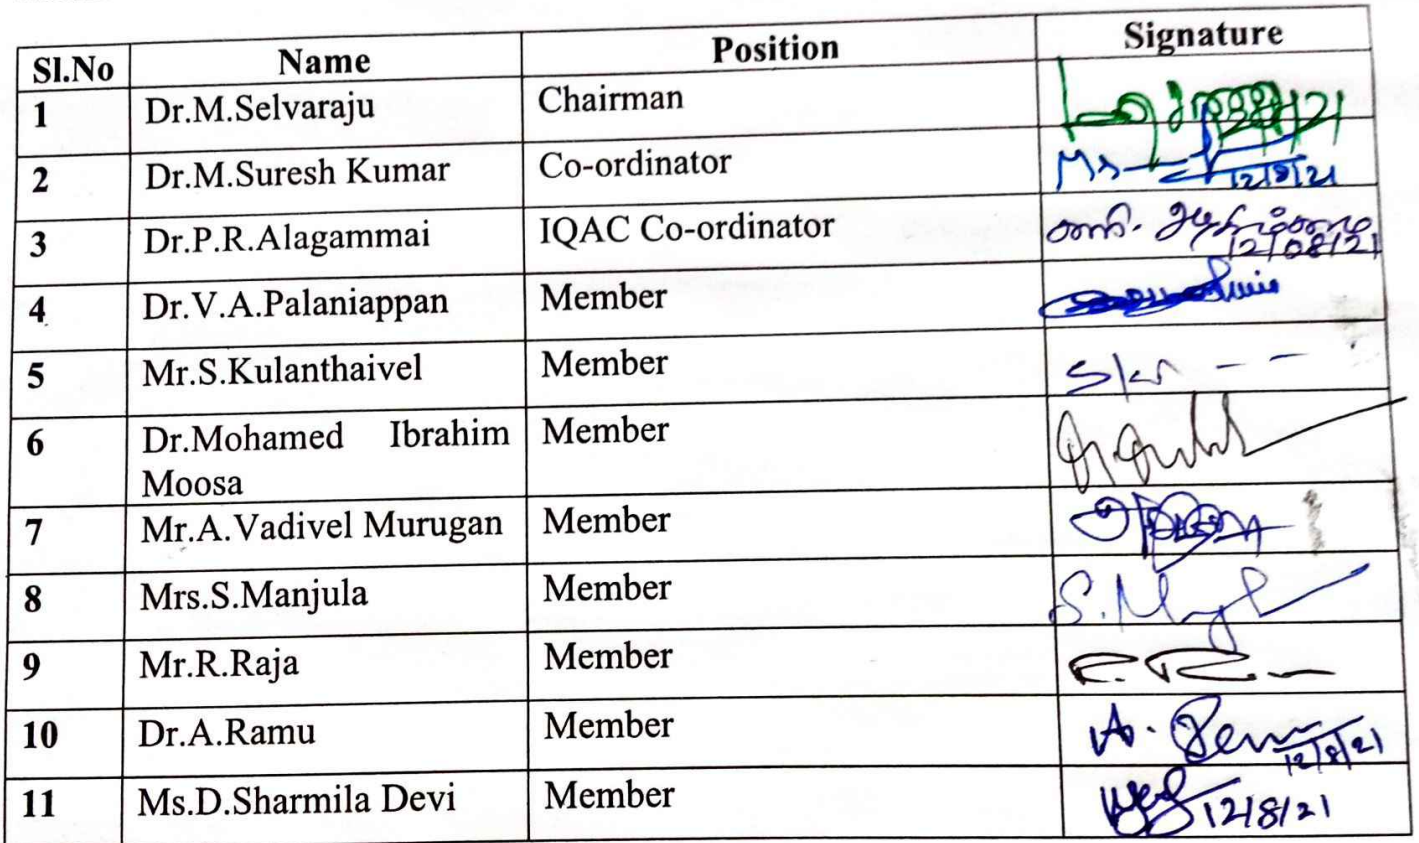 Sl.No Name Position Signature
1 Dr.M.Selvaraju Chairman
2 Dr.M.Suresh Kumar Co-ordinator 12/8/21
3 Dr.P.R.Alagammai IQAC Co-ordinator 12/08/21
4 Dr.V.A.Palaniappan Member
5 Mr.S.Kulanthaivel Member
6 Dr.Mohamed Ibrahim Member
Moosa
7 Mr.A.Vadivel Murugan Member
8 Mrs.S.Manjula Member
9 Mr.R.Raja Member
10 Dr.A.Ramu Member 12/8/21
11 Ms.D.Sharmila Devi Member 12/8/21